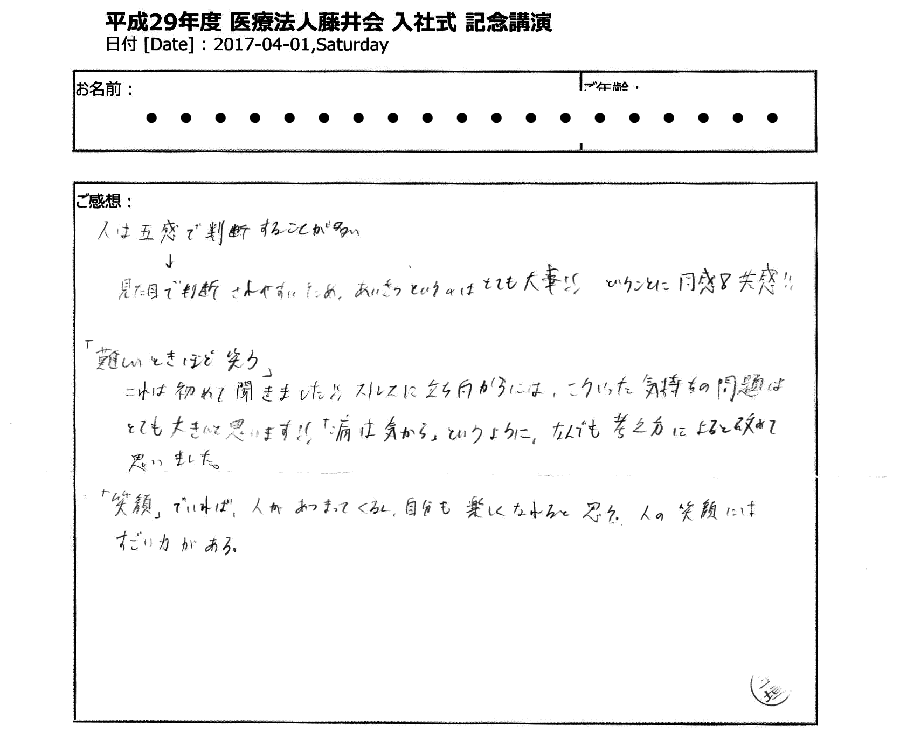 平成29年度 医療法人藤井会 入社式 記念講演
日付 [Date] : 2017-04-01,Saturday
お名前： ご年齢：
ご感想：
人は五感で判断することが多い
↓
見た目で判断されやすいため、あいさつというのはとても大事!! ということに同感&共感!!
「難しいときほど笑う」
これは初めて聞きました!! ストレスに立ち向かうには、こういった気持ちの問題は
とても大きいと思います!!「病は気から」というように、なんでも考え方によると改めて
思いました。
「笑顔」でいれば、人があつまってくるし、自分も楽しくなれると思う。人の笑顔には
すごい力がある。